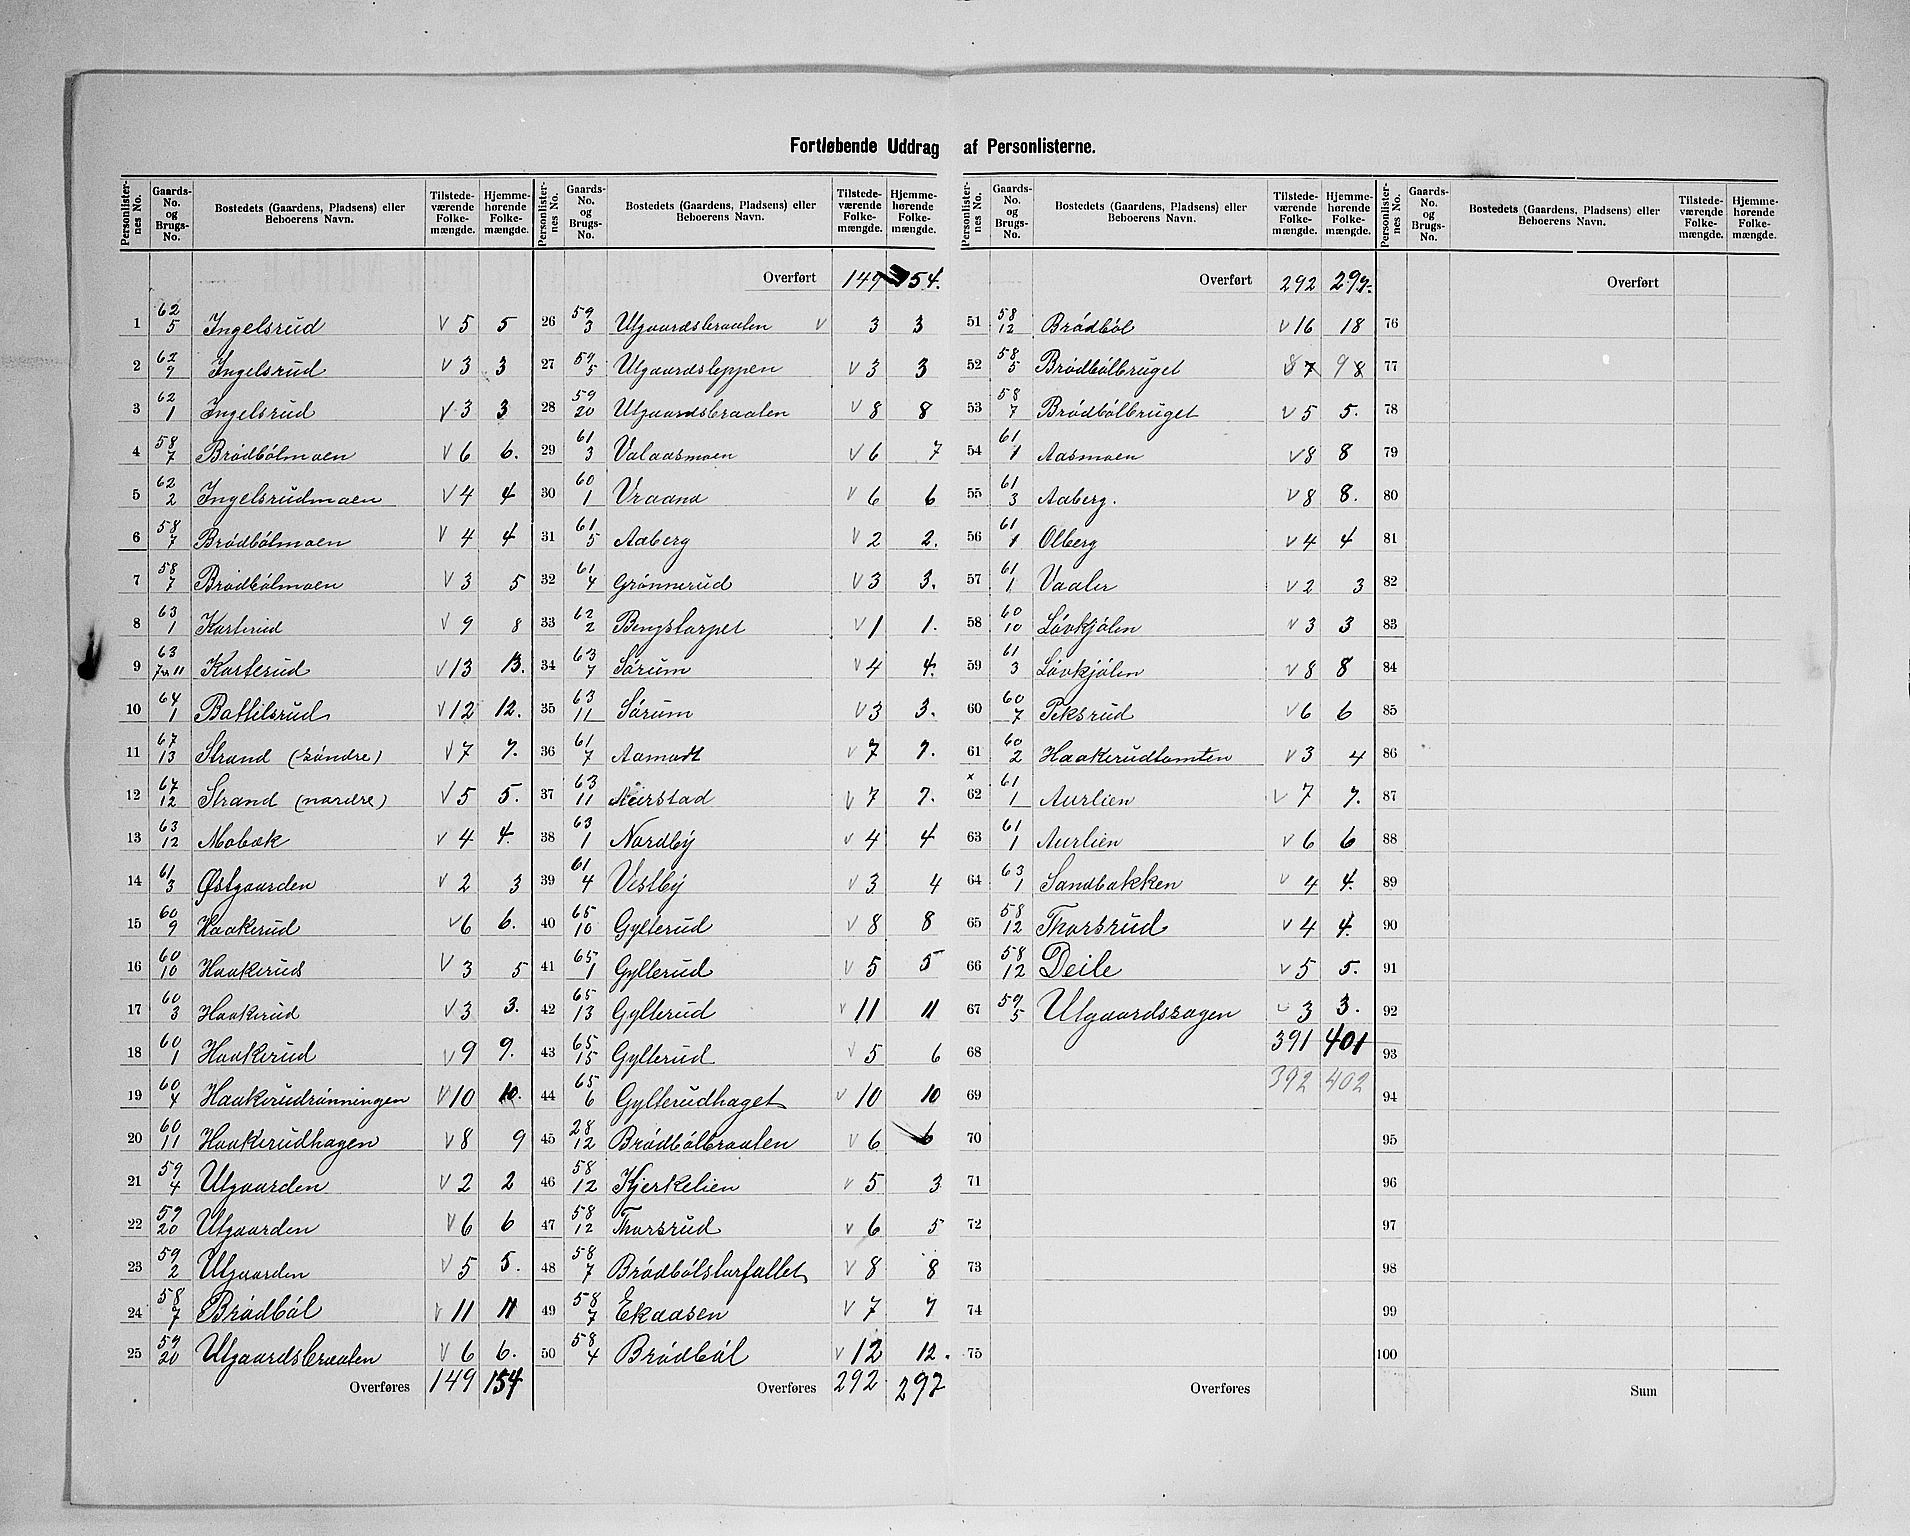 Fortløbende Uddrag af Personlisterne.
Personlister-nes No. | Gaards-No. og Brugs-No. | Bostedets (Gaardens, Pladsens) eller Beboerens Navn. | Tilstede-værende Folke-mængde. | Hjemme-hørende Folke-mængde.
1 | 62/5 | Ingelsrud | V 5 | 5
2 | 62/9 | Ingelsrud | V 3 | 3
3 | 62/1 | Ingelsrud | V 3 | 3
4 | 58/7 | Brödbölmoen | V 6 | 6.
5 | 62/2 | Ingelsrudmoen | V 4 | 4
6 | 58/7 | Brödbölmoen | V 4 | 4
7 | 58/7 | Brödbölmoen | V 3 | 5
8 | 63/1 | Karterud | V 9 | 8
9 | 63/7 11 | Karterud | V 13 | 13.
10 | 64/1 | Battilsrud | V 12 | 12.
11 | 67/13 | Strand (söndre) | V 7 | 7.
12 | 67/12 | Strand (nordre) | V 5 | 5.
13 | 63/12 | Mobæk | V 4 | 4.
14 | 61/3 | Østgaarden | V 2 | 3
15 | 60/9 | Haakerud | V 6 | 6.
16 | 60/10 | Haakerud | V 3 | 5
17 | 60/3 | Haakerud | V 3 | 3.
18 | 60/1 | Haakerud | V 9 | 9.
19 | 60/4 | Haakerudrönningen | V 10 | 10.
20 | 60/11 | Haakerudhagen | V 8 | 9
21 | 59/4 | Utgaarden | V 2 | 2
22 | 59/20 | Utgaarden | V 6 | 6
23 | 59/2 | Utgaarden | V 5 | 5.
24 | 58/7 | Brödböl | V 11 | 11
25 | 59/20 | Utgaardsbraaten | V 6 | 6.
Overføres | 149 | 154
Personlister-nes No. | Gaards-No. og Brugs-No. | Bostedets (Gaardens, Pladsens) eller Beboerens Navn. | Tilstede-værende Folke-mængde. | Hjemme-hørende Folke-mængde.
Overført | 149 | 154.
26 | 59/3 | Utgaardsbraaten | V 3 | 3
27 | 59/5 | Utgaardsleppen | V 3 | 3
28 | 59/20 | Utgaardsbraaten | V 8 | 8
29 | 61/3 | Valaasmoen | V 6 | 7
30 | 60/1 | Vraana | V 6 | 6
31 | 61/5 | Aaberg | V 2 | 2.
32 | 61/4 | Grönnerud | V 3 | 3.
33 | 62/2 | Bengstorpet | V 1 | 1.
34 | 63/7 | Sörum | V 4 | 4.
35 | 63/11 | Sörum | V 3 | 3.
36 | 61/7 | Aamodt | V 7 | 7.
37 | 63/11 | V 7 | 7.
38 | 63/1 | Nordby | V 4 | 4
39 | 61/4 | Vestby | V 3 | 4
40 | 65/10 | Gylterud | V 8 | 8
41 | 65/1 | Gylterud | V 5 | 5
42 | 65/13 | Gylterud | V 11 | 11
43 | 65/15 | Gylterud | V 5 | 6
44 | 65/6 | Gylterudhaget | V 10 | 10
45 | 28/12 | Brödbölbraaten | V 6 | 6
46 | 58/12 | Kjerkelien | V 5 | 3
47 | 58/12 | Thorsrud | V 6 | 5
48 | 58/7 | Brödbölstorfallet | V 8 | 8
49 | 58/7 | Ekaasen | V 7 | 7
50 | 58/4 | Brödböl | V 12 | 12.
Overføres | 292 | 297
Personlister-nes No. | Gaards-No. og Brugs-No. | Bostedets (Gaardens, Pladsens) eller Beboerens Navn. | Tilstede-værende Folke-mængde. | Hjemme-hørende Folke-mængde.
Overført | 292 | 297.
51 | 58/12 | Brödböl | V 16 | 18
52 | 58/5 | Brödbölbruget | 8 7 | 9 8
53 | 58/7 | Brödbölbruget | V 5 | 5.
54 | 61/1 | Aasmoen | V 8 | 8
55 | 61/3 | Aaberg. | V 8 | 8.
56 | 61/1 | Olberg | V 4 | 4
57 | 61/1 | Vaaler | V 2 | 3
58 | 60/10 | Lövkjölen | V 3 | 3
59 | 61/3 | Lövkjölen | V 8 | 8
60 | 60/7 | Peksrud | V 6 | 6
61 | 60/2 | Haakerudtomten | V 3 | 4
x 62 | 61/1 | Aurlien | V 7 | 7.
63 | 61/1 | Aurlien | V 6 | 6
64 | 63/1 | Sandbakken | V 4 | 4.
65 | 58/12 | Thorsrud | V 4 | 4.
66 | 58/12 | Deile | V 5 | 5.
67 | 59/5 | Utgaardssagen | V 3 | 3.
68 | 391 | 401
69 | 392 | 402
70
71
72
73
74
75
Overføres
Personlister-nes No. | Gaards-No. og Brugs-No. | Bostedets (Gaardens, Pladsens) eller Beboerens Navn. | Tilstede-værende Folke-mængde. | Hjemme-hørende Folke-mængde.
Overført
76
77
78
79
80
81
82
83
84
85
86
87
88
89
90
91
92
93
94
95
96
97
98
99
100
Sum